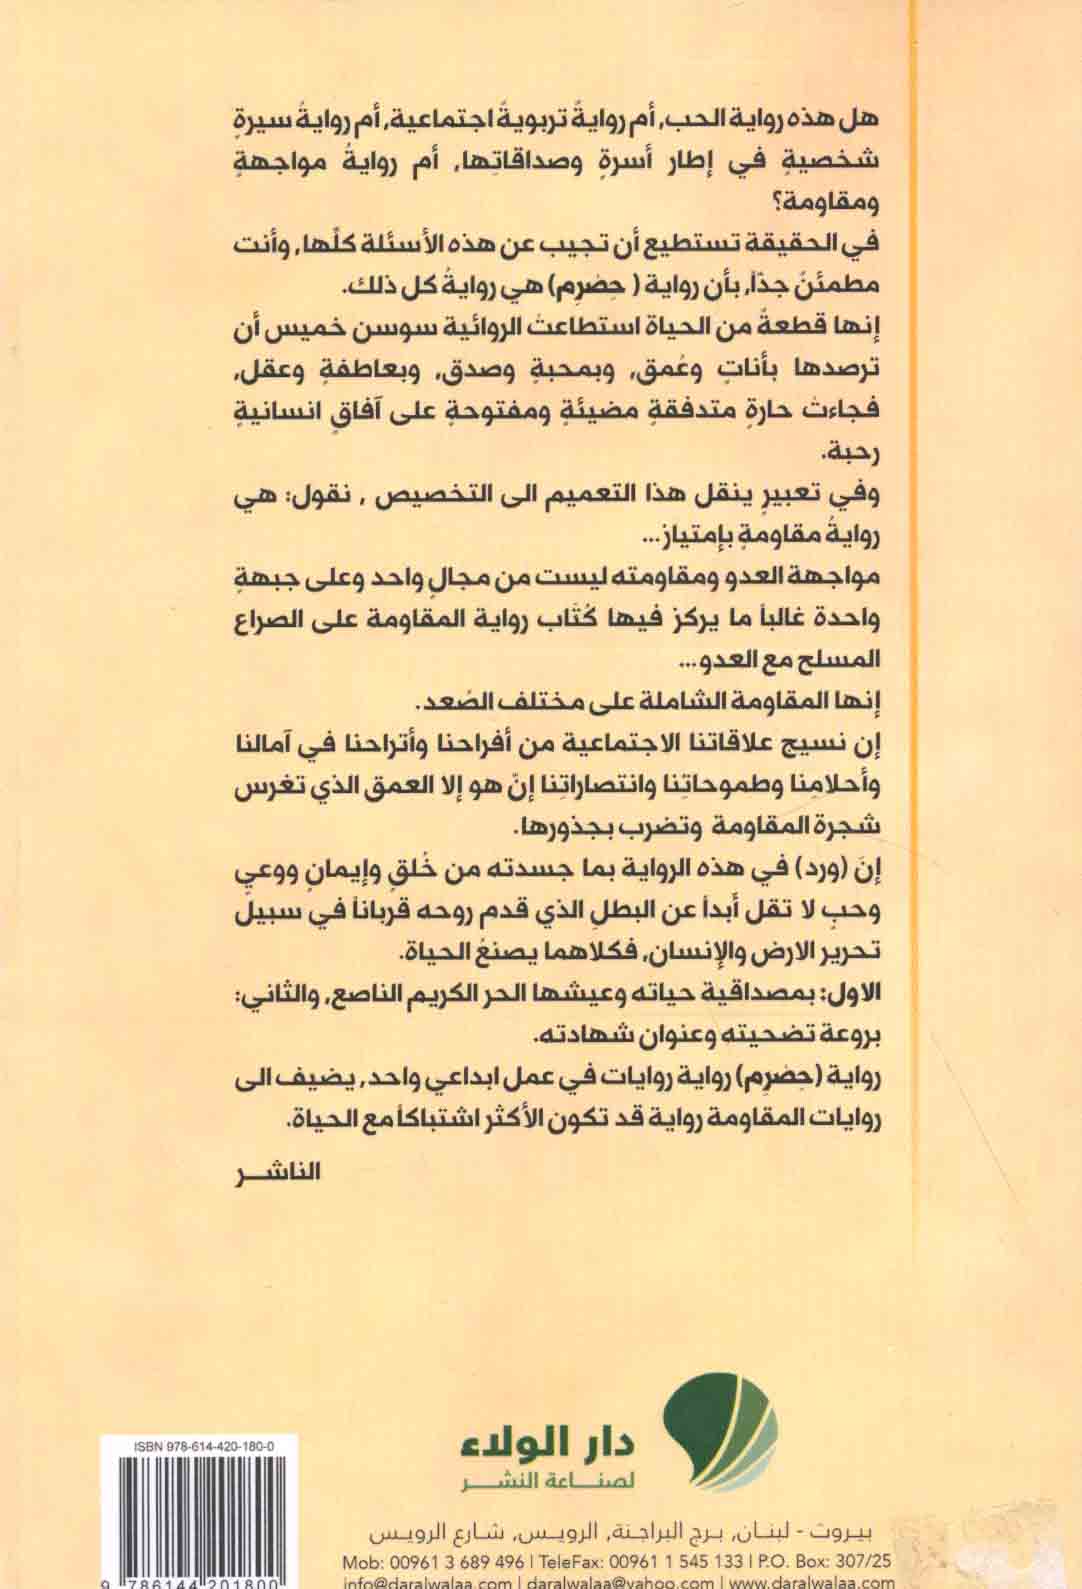 هل هذه رواية الحب، أم روايةً تربويةً اجتماعية، أم روايةُ سيرةٍ
شخصيةٍ في إطار أسرةٍ وصداقاتِها، أم روايةُ مواجهةٍ
ومقاومة؟
في الحقيقة تستطيع أن تجيب عن هذه الأسئلة كلّها، وأنت
مطمئنٌ جدّاً، بأن رواية ( حِضرِم) هي روايةُ كل ذلك.
إنها قطعةٌ من الحياة استطاعت الروائية سوسن خميس أن
ترصدها بأناتٍ وعُمق، وبمحبةٍ وصدق، وبعاطفةٍ وعقل،
فجاءت حارةٍ متدفقةٍ مضيئةٍ ومفتوحةٍ على آفاقٍ انسانيةٍ
رحبة.
وفي تعبيرٍ ينقل هذا التعميم الى التخصيص , نقول: هي
روايةُ مقاومةٍ بإمتياز...
مواجهة العدو ومقاومته ليست من مجالٍ واحد وعلى جبهةٍ
واحدة غالباً ما يركز فيها كُتّاب رواية المقاومة على الصراع
المسلح مع العدو...
إنها المقاومة الشاملة على مختلف الصُعد.
إن نسيج علاقاتنا الاجتماعية من أفراحنا وأتراحنا في آمالنا
وأحلامِنا وطموحاتِنا وانتصاراتِنا إنّ هو إلا العمق الذي تغرس
شجرة المقاومة وتضرب بجذورها.
إنَ (ورد) في هذه الرواية بما جسدته من خُلقٍ وإيمانٍ ووعيٍ
وحبٍ لا تقل أبداً عن البطلِ الذي قدم روحه قرباناً في سبيل
تحرير الارض والإنسان، فكلاهما يصنعُ الحياة.
الاول: بمصداقية حياته وعيشها الحر الكريم الناصع، والثاني:
بروعة تضحيته وعنوان شهادته.
رواية (حِضرِم) رواية روايات في عمل ابداعي واحد، يضيف الى
روايات المقاومة رواية قد تكون الأكثر اشتباكاً مع الحياة.
الناشـــر
دار الولاء
لصنـــاعة النشـــر
ISBN 978-614-420-180-0
9 786144 201800
بيـروت - لبنـان، بـرج البراجـنة، الرويـس، شـارع الرويس
Mob: 00961 3 689 496 | TeleFax: 00961 1 545 133 | P.O. Box: 307/25
info@daralwalaa.com | daralwalaa@yahoo.com | www.daralwalaa.com